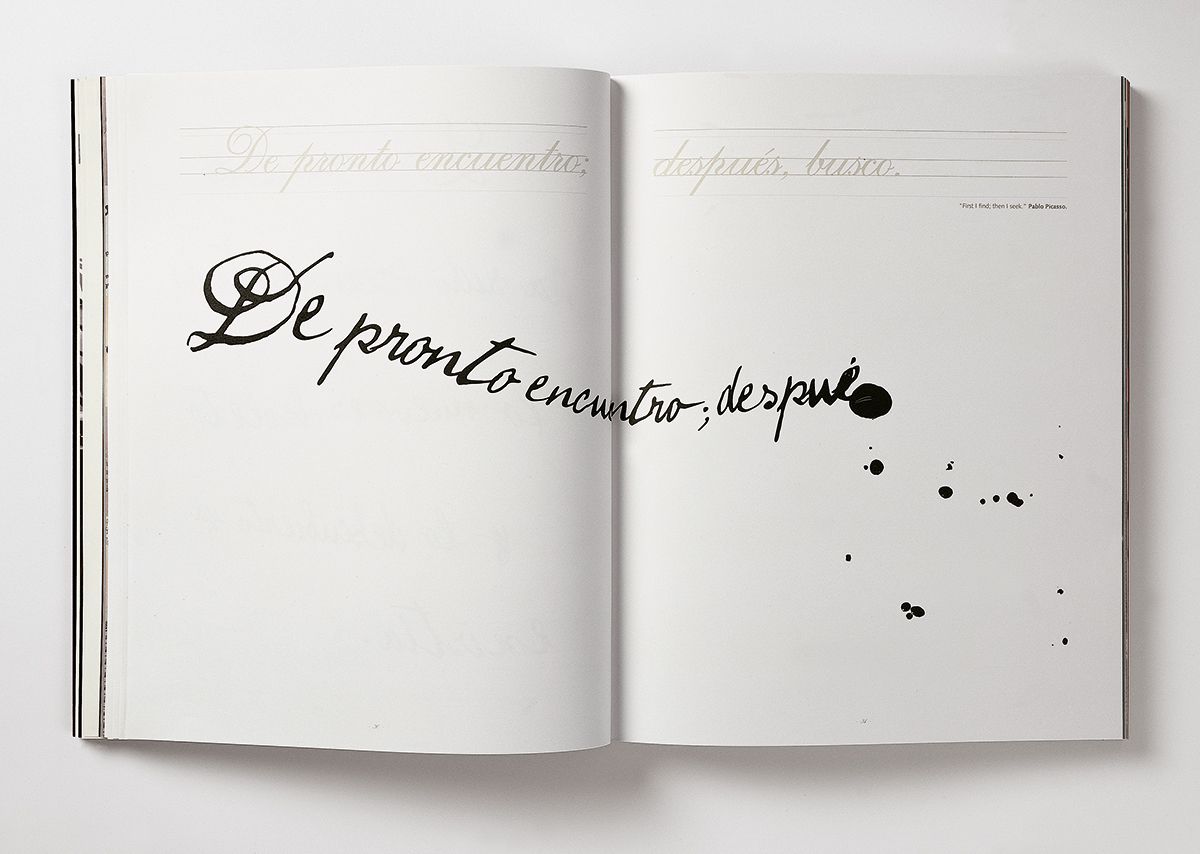 De pronto encuentro; después, busco.
"First I find; then I seek." Pablo Picasso.
De pronto encuntro; despué